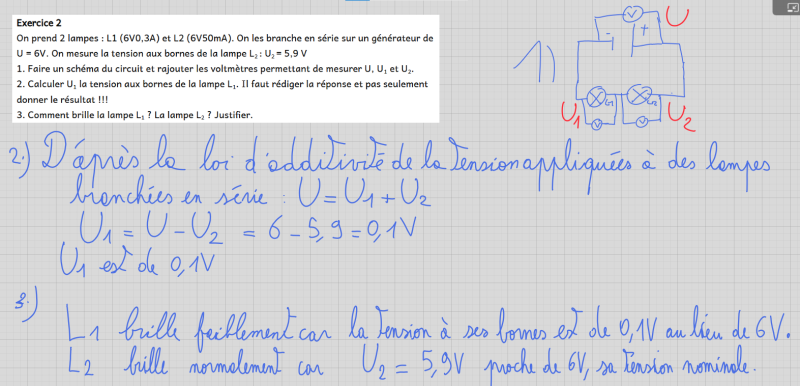 Exercice 2
On prend 2 lampes : L1 (6V0,3A) et L2 (6V50mA). On les branche en série sur un générateur de
U = 6V. On mesure la tension aux bornes de la lampe L₂ : U₂ = 5,9 V
1. Faire un schéma du circuit et rajouter les voltmètres permettant de mesurer U, U₁ et U₂.
2. Calculer U₁ la tension aux bornes de la lampe L₁. Il faut rédiger la réponse et pas seulement
donner le résultat !!!
3. Comment brille la lampe L₁ ? La lampe L₂ ? Justifier.
1)
V U
- +
L1 L2
U1 U2
V V
2.) D'après la loi d'additivité de la tension appliquées à des lampes
branchées en série : U = U1 + U2
U1 = U - U2 = 6 - 5,9 = 0,1V
U1 est de 0,1V
3.)
L1 brille faiblement car la tension à ses bornes est de 0,1V au lieu de 6V.
L2 brille normalement car U2 = 5,9V proche de 6V, sa tension nominale.